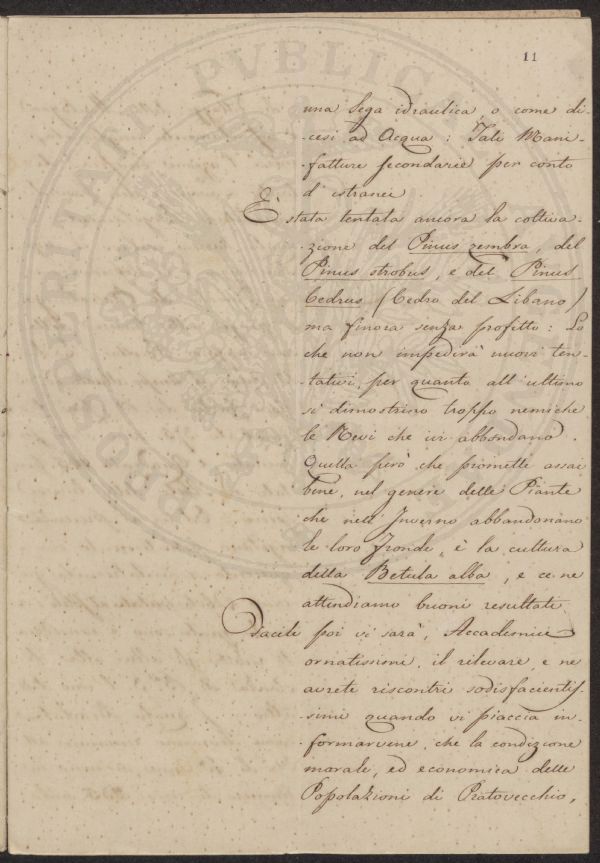 11
una Sega idraulica, o come di-
-cesi ad Acqua: Tali Mani-
-fatture secondarie per conto
d'estranei.
È stata tentata ancora la coltiva-
-zione del Pinus zembra, del
Pinus strobus, e del Pinus
Cedrus (Cedro del Libano)
ma finora senza profitto: Lo
che non impedirà nuovi ten-
-tativi, per quanto all'ultimo
si dimostrino troppo nemiche
le Nevi che ivi abbondano.
Quella però che promette assai
bene, nel genere delle Piante
che nell'Inverno abbandonano
le loro fronde, è la cultura
della Betula alba, e ce ne
attendiamo buoni resultati.
Facile poi vi sarà, Accademici
ornatissimi, il rilevare e ne
avrete riscontri sodisfacientis-
simi quando vi piaccia in-
-formarvene, che la condizione
morale, ed economica delle
Popolazioni di Pratovecchio,
PVBLICA
PROSPERITATI